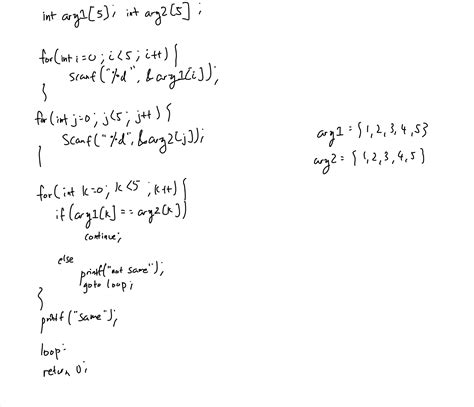 int arg1[5]; int arg2[5] ;
for(int i=0; i<5; i++) {
scanf("%d", &arg1[i]);
}
for(int j=0; j<5; j++) {
scanf("%d", &arg2[j]);
}
for(int k=0; k<5; k++) {
if(arg1[k] == arg2[k])
continue;
else
printf("not same");
goto loop;
}
printf("same");
loop:
return 0;
arg1 = {1,2,3,4,5}
arg2 = {1,2,3,4,5}